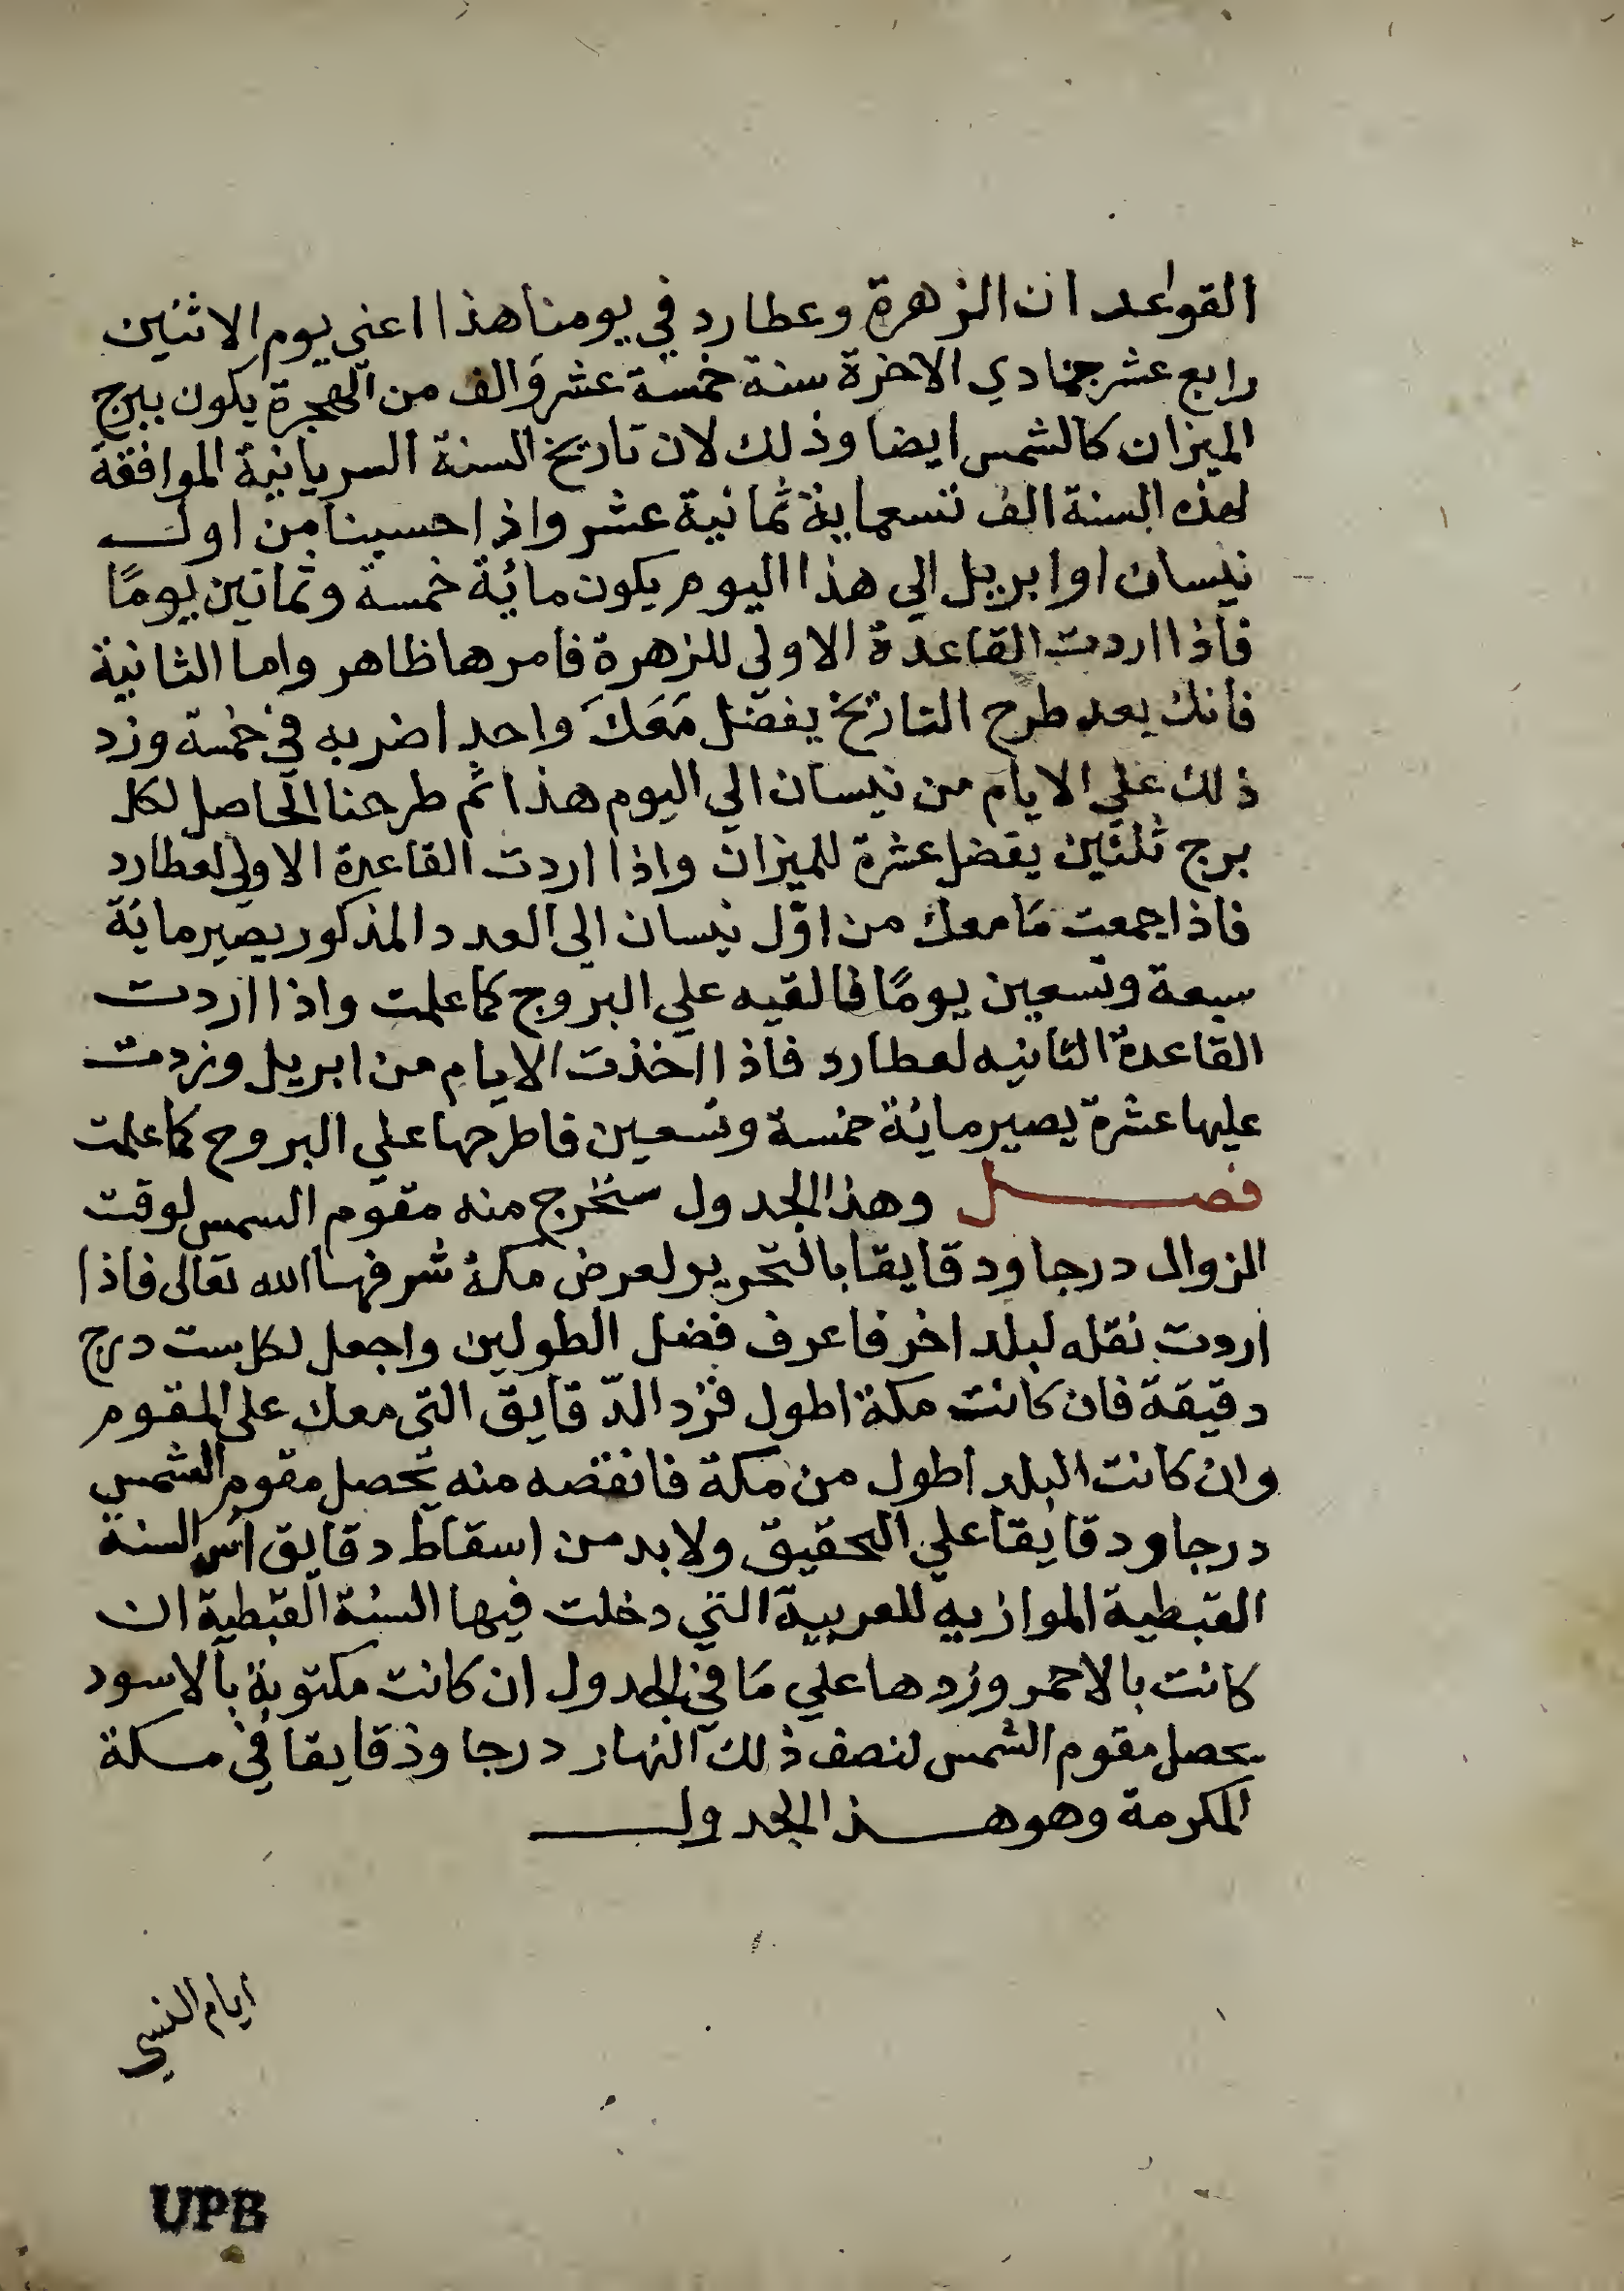 القواعد ان الزهرة وعطارد في يومنا هذا اعني يوم الاثنين
رابع عشر جمادي الاخرة سنة خمسة عشر والف من الهجرة يكون ببرج
الميزان كالشمس ايضا وذلك لان تاريخ السنة السريانية الموافقة
لهذه السنة الف تسعماية ثمانية عشر واذا حسبنا من اول
نيسان او ابريل الي هذا اليوم يكون مائة خمسة وثمانين يومًا
فاذا اردت القاعدة الاولي للزهرة فامرها ظاهر واما الثانية
فانك بعد طرح التاريخ يفضل مَعَكَ واحد اضربه في خمسة وزد
ذلك علي الايام من نيسان الي اليوم هذا ثم طرحنا الحاصل لكل
برج ثلثين يفضل عشرة للميزان واذا اردت القاعدة الاولي لعطارد
فاذا جمعت مَا معك من اوّل نيسان الي العدد المذكور يصير مائة
سبعة وتسعين يومًا فالقيه علي البروج كما علمت واذا اردت
القاعدة الثانيه لعطارد فاذا اخذت الايام من ابريل وزدت
عليها عشرة يصير مائة خمسة وتسعين فاطرحها علي البروج كما علمت
فصل وهذا الجدول ستخرج منه مقوم الشمس لوقت
الزوال درجا ودقايقا بالتحرير لعرض مكة شرفها الله تعالى فاذا
اردت نقله لبلد اخر فاعرف فضل الطولين واجعل لكل ست درج
دقيقة فان كانت مكة اطول فزد الدّقايق التي معك على المقوم
وان كانت البلد اطول من مكة فانقصه منه تحصل مقوم الشمس
درجا ودقايقا علي التحقيق ولا بد من اسقاط دقايق اس السنة
القبطية الموازيه للعربية التي دخلت فيها السنة القبطية ان
كانت بالاحمر وزدها علي مَا في الجدول ان كانت مكتوبة بالاسود
يحصل مقوم الشمس لنصف ذلك النهار درجا ودقايقا في مكة
المكرمة وهو هذا الجدول
ايام النسي
UPB